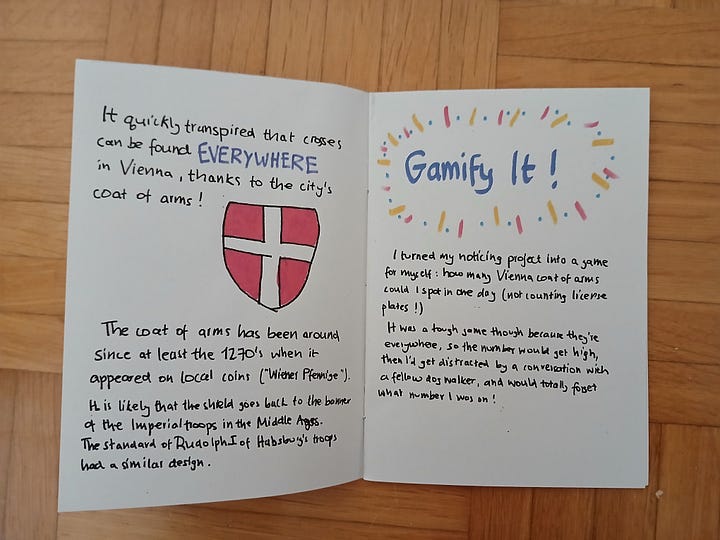 It quickly transpired that crosses
can be found EVERYWHERE
in Vienna, thanks to the city's
coat of arms!
The coat of arms has been around
since at least the 1270's when it
appeared on local coins ("Wiener Pfennige").
It is likely that the shield goes back to the banner
of the Imperial troops in the Middle Ages.
The standard of Rudolph I of Habsburg's troops
had a similar design.
Gamify It!
I turned my noticing project into a game
for myself: how many Vienna coat of arms
could I spot in one day (not counting license
plates!)
It was a tough game though because they're
everywhere, so the number would get high,
then I'd get distracted by a conversation with
a fellow dog walker, and would totally forget
what number I was on!